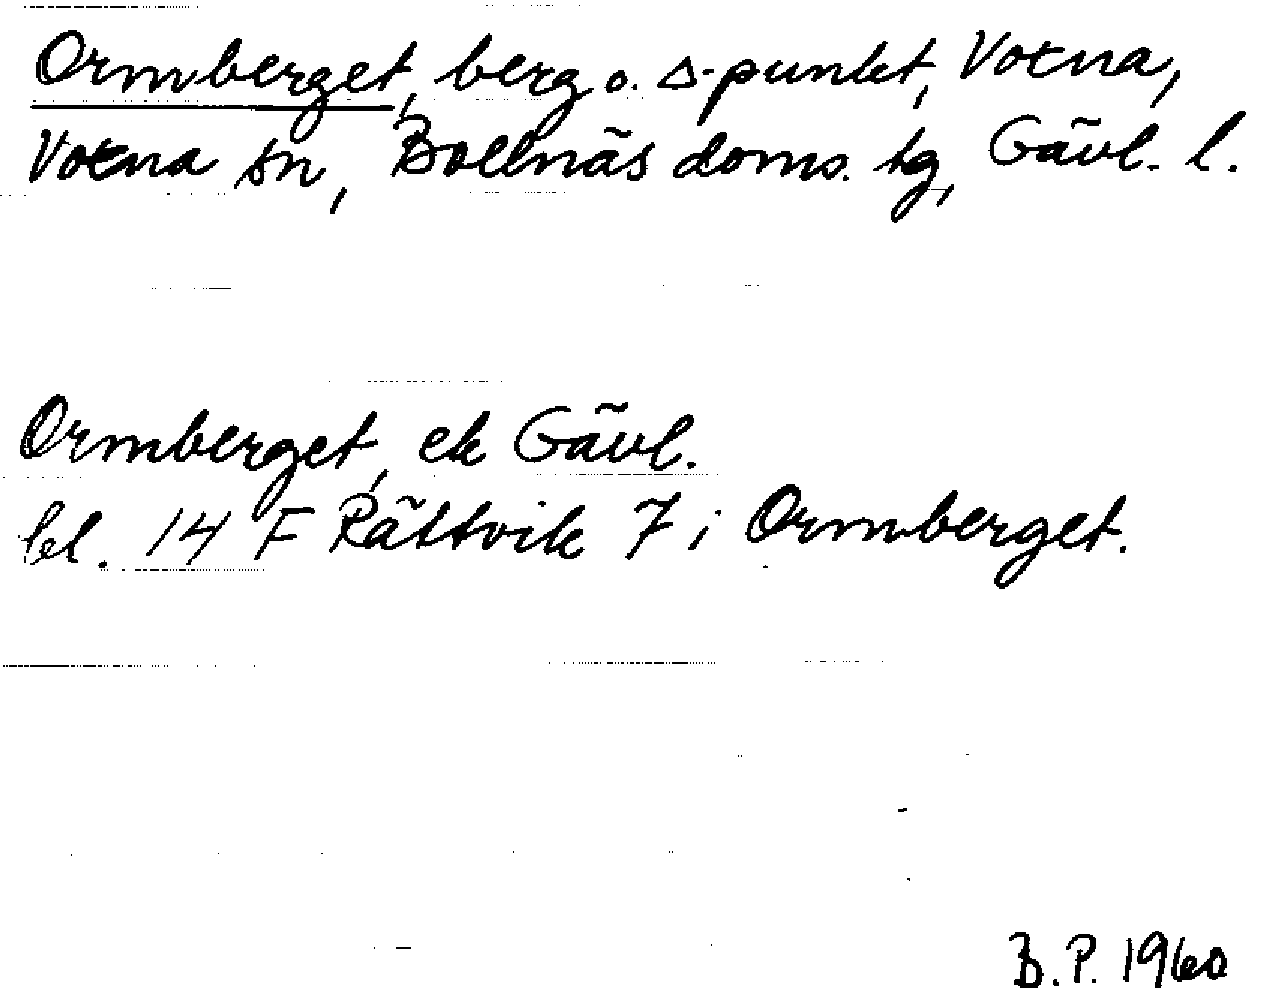 Ormberget, berg o. Δ-punkt, Voxna,
Voxna sn, Bollnäs doms. tg, Gävl. l.
Ormberget, ek Gävl.
bl. 14 F Rättvik 7 i Ormberget.
B.P. 1960